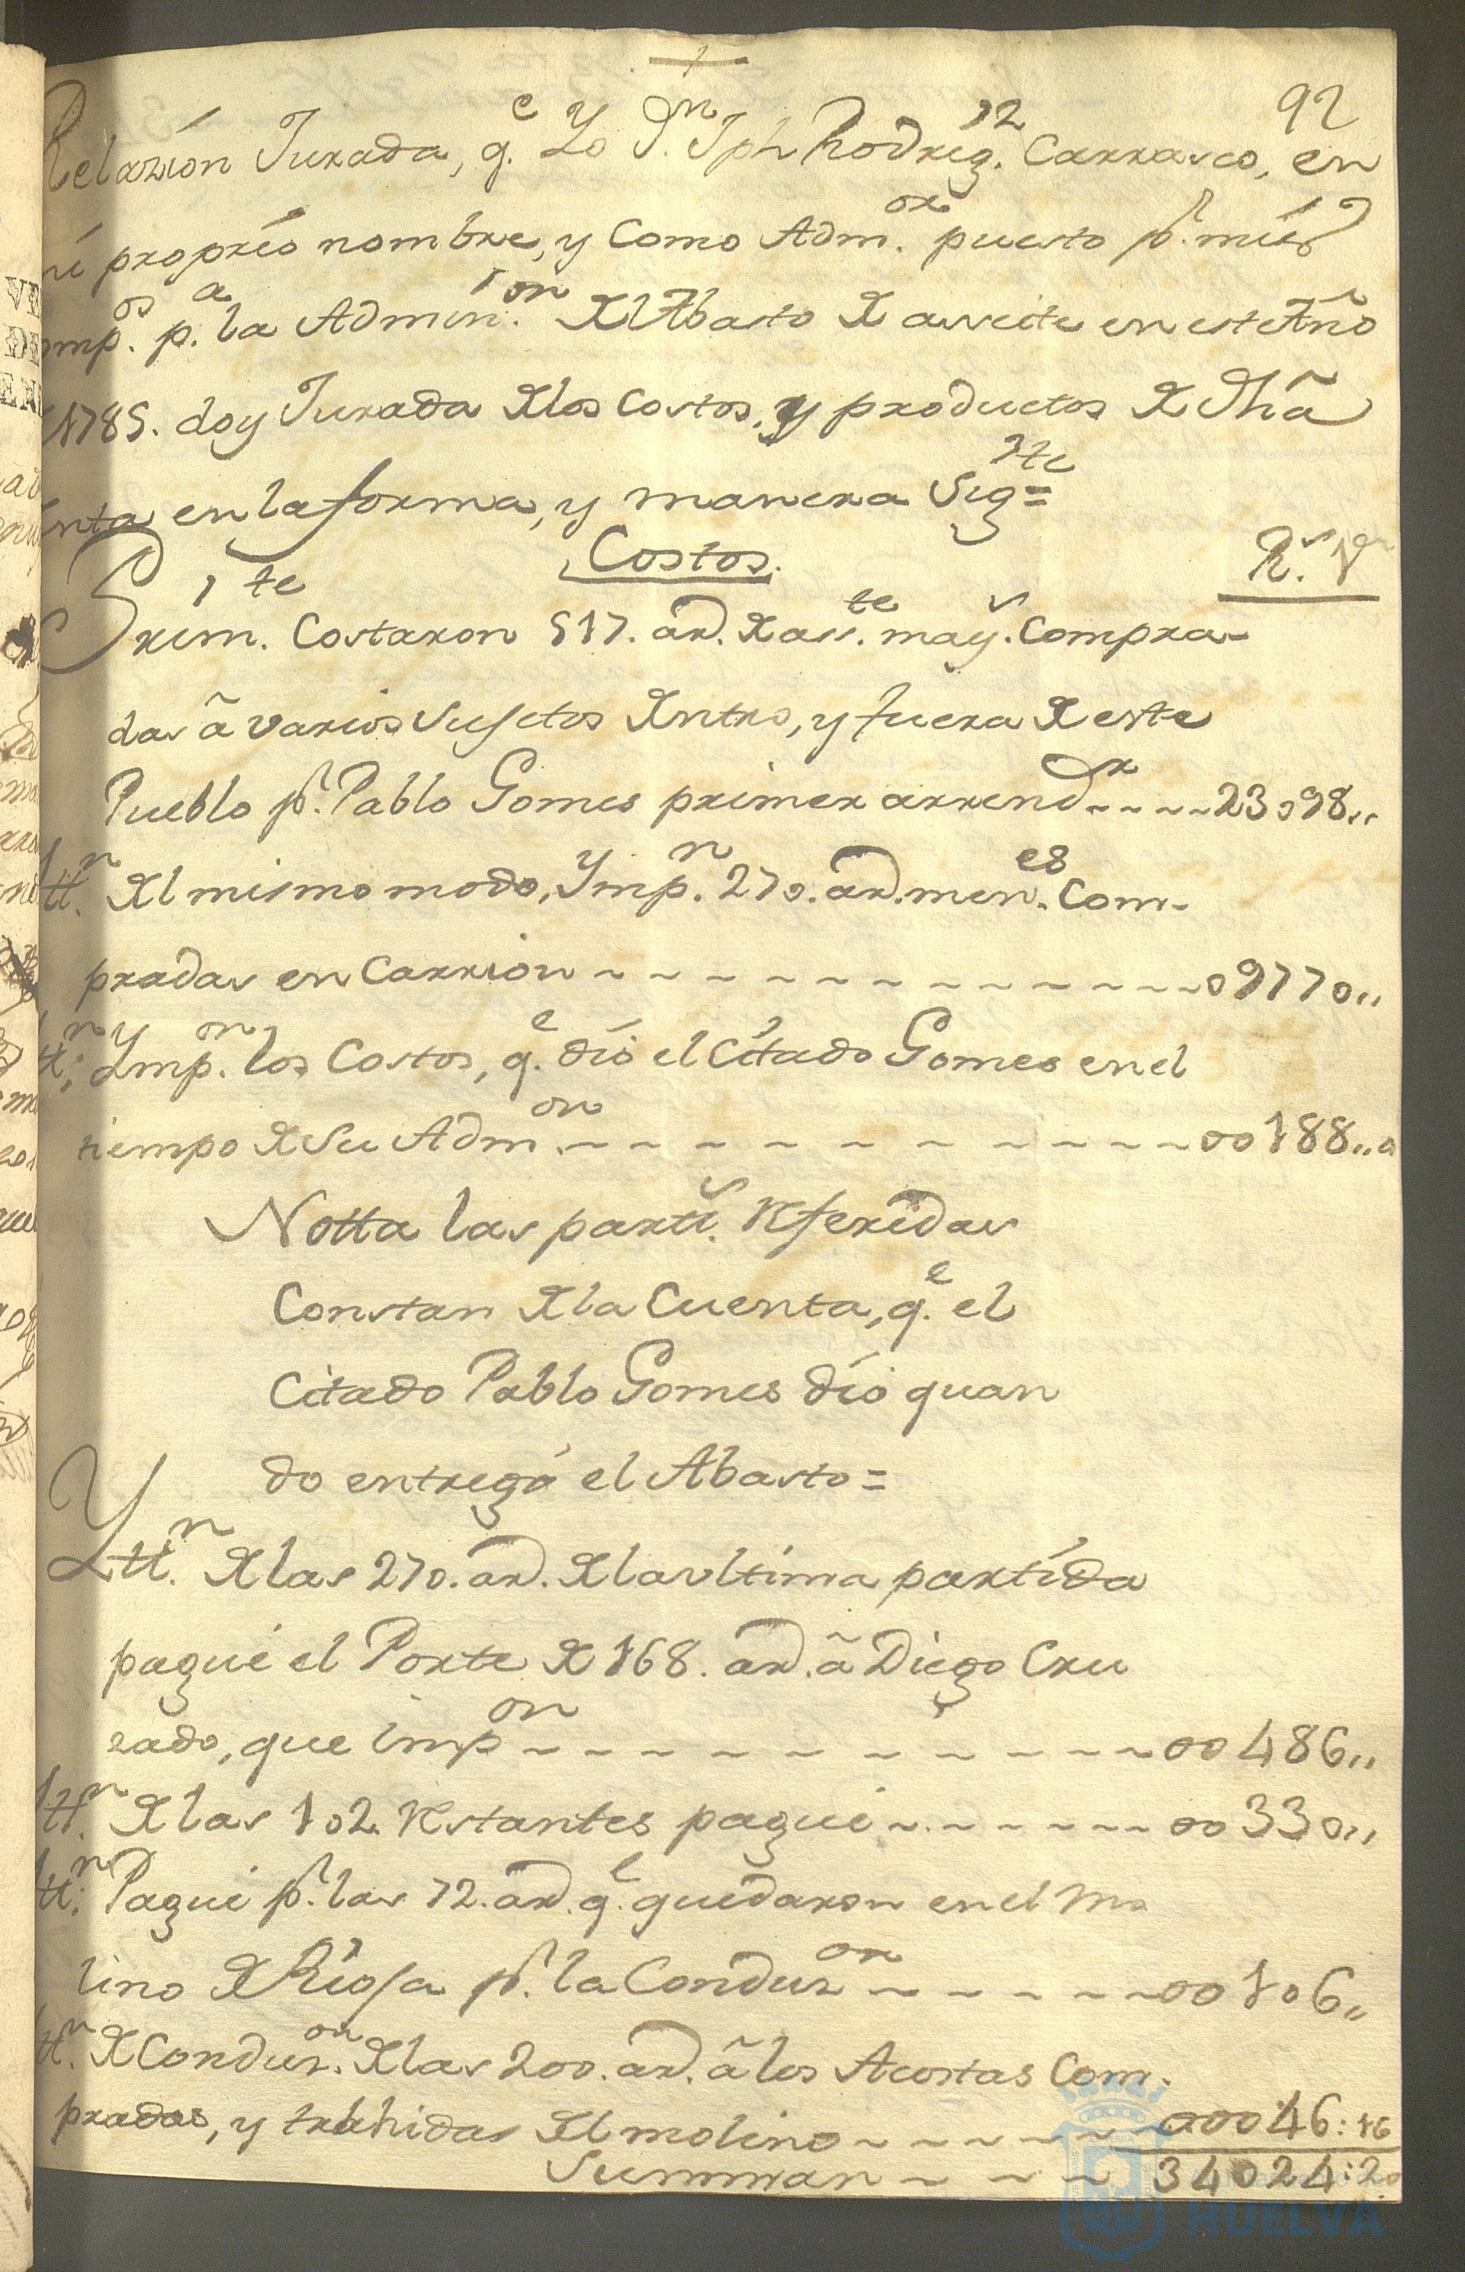 92
Relazión Jurada, q.e Yo D.n Jph Rodrig.z Carrasco, en
mi proprio nombre, y como Adm.or puesto p.r mis
comp.os p.a la Admin.ion Del Abasto De aseite en este Año
1785. doy Jurada De los Costos, y productos De Dha
Renta en la forma, y manera Sig.te =
Costos. R.s V.n
Prim.te Costaron 517. ar. De ass.te may.s Compra-
das â varios Sujetos Dentro, y fuera De este
Pueblo p.r Pablo Gomes primer arrend.or 23098,,
Itt.n Del mismo modo, Ymp.n 270. ar. men.es Com-
pradas en Carrion 09770,,
Itt.n Ymp.on los Costos, q.e dió el Citado Gomes en el
tiempo De Su Adm.on 00188,,
Notta las partt.s Referidas
Constan De la Cuenta, q.e el
Citado Pablo Gomes dió quan
do entregó el Abasto =
Ytt.n De las 270. ar. De la ultima partida
pagué el Porte De 168. ar. â Diego Cru
zado, que imp.on 00486,,
Itt.n De las 102 Restantes pagué 00330,,
Itt.n Pagué p.r las 72. ar. q.e quedaron en el Mo
lino De Rioja p.r la Conduz.on 00106,,
Itt.n De Conduz.on De las 200. ar. â los Acostas Com-
pradas, y trahidas Del molino 00046:16
Summan 34024:20
HUELVA